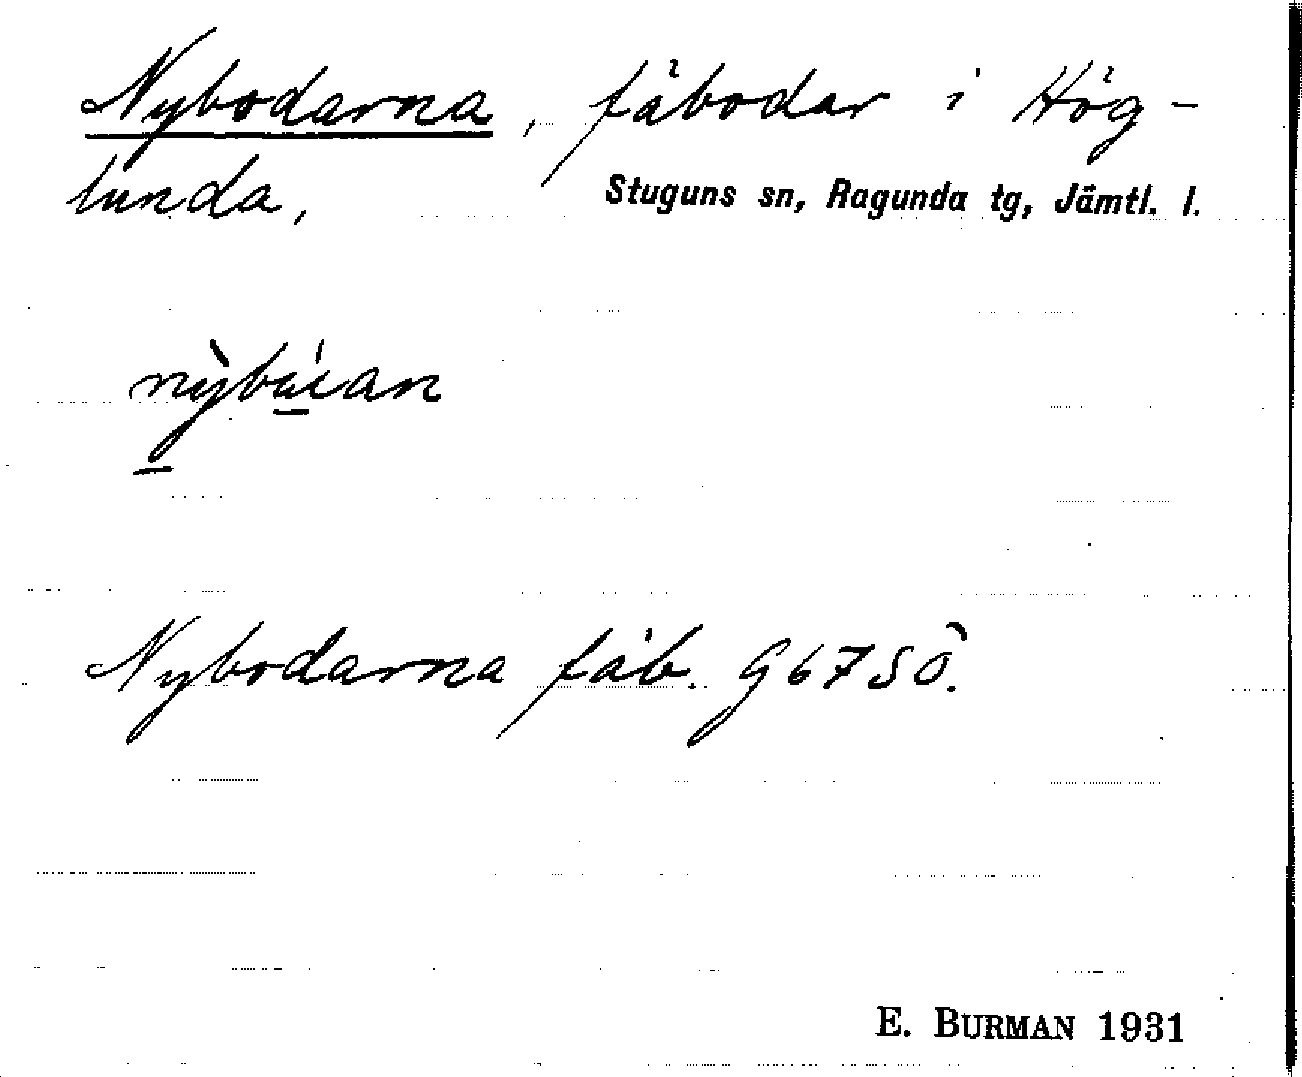 Nybodarna, fäbodar i Hög-
lunda, Stuguns sn, Ragunda tg, Jämtl. l.
Nybodarna fäb. G67SÖ.
E. BURMAN 1931